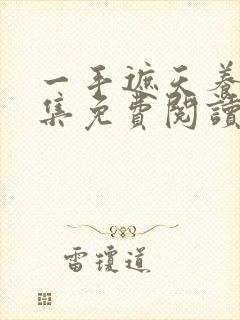 一手遮天養
集免費閱讀
雷瓊道